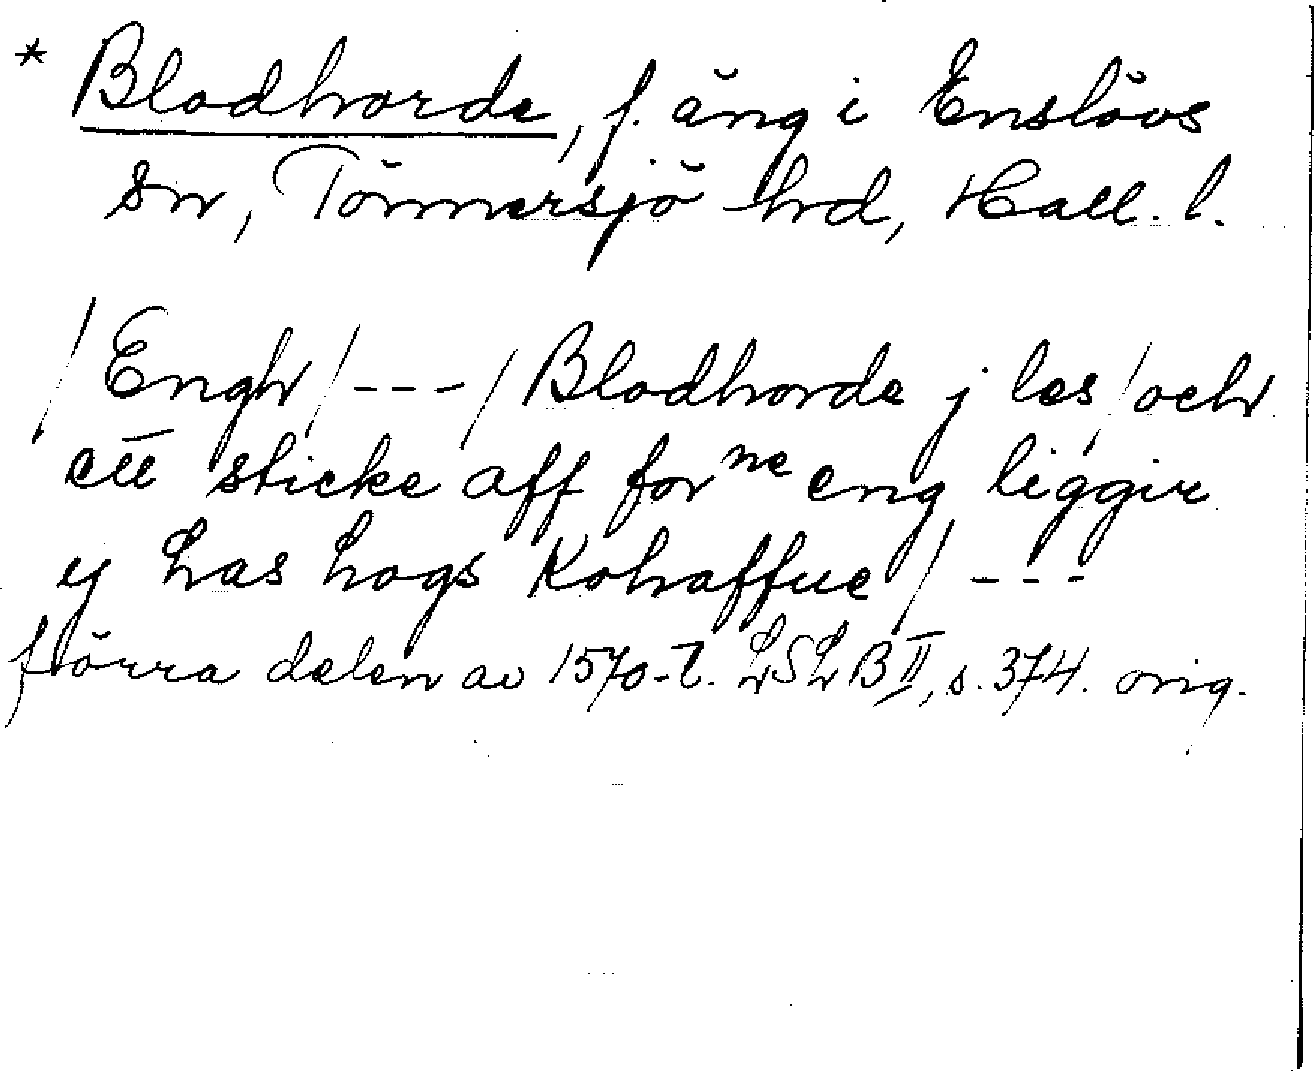 * Blodhorde, f. äng i Enslövs
sn, Tönnersjö hrd, Hall. l.
/Engh/---/Blodhorde j les/och
ett sticke aff for ne eng liggir
y has hogs Kohaffue/---
förra delen av 1570-t. LSLB II, s. 374. orig.